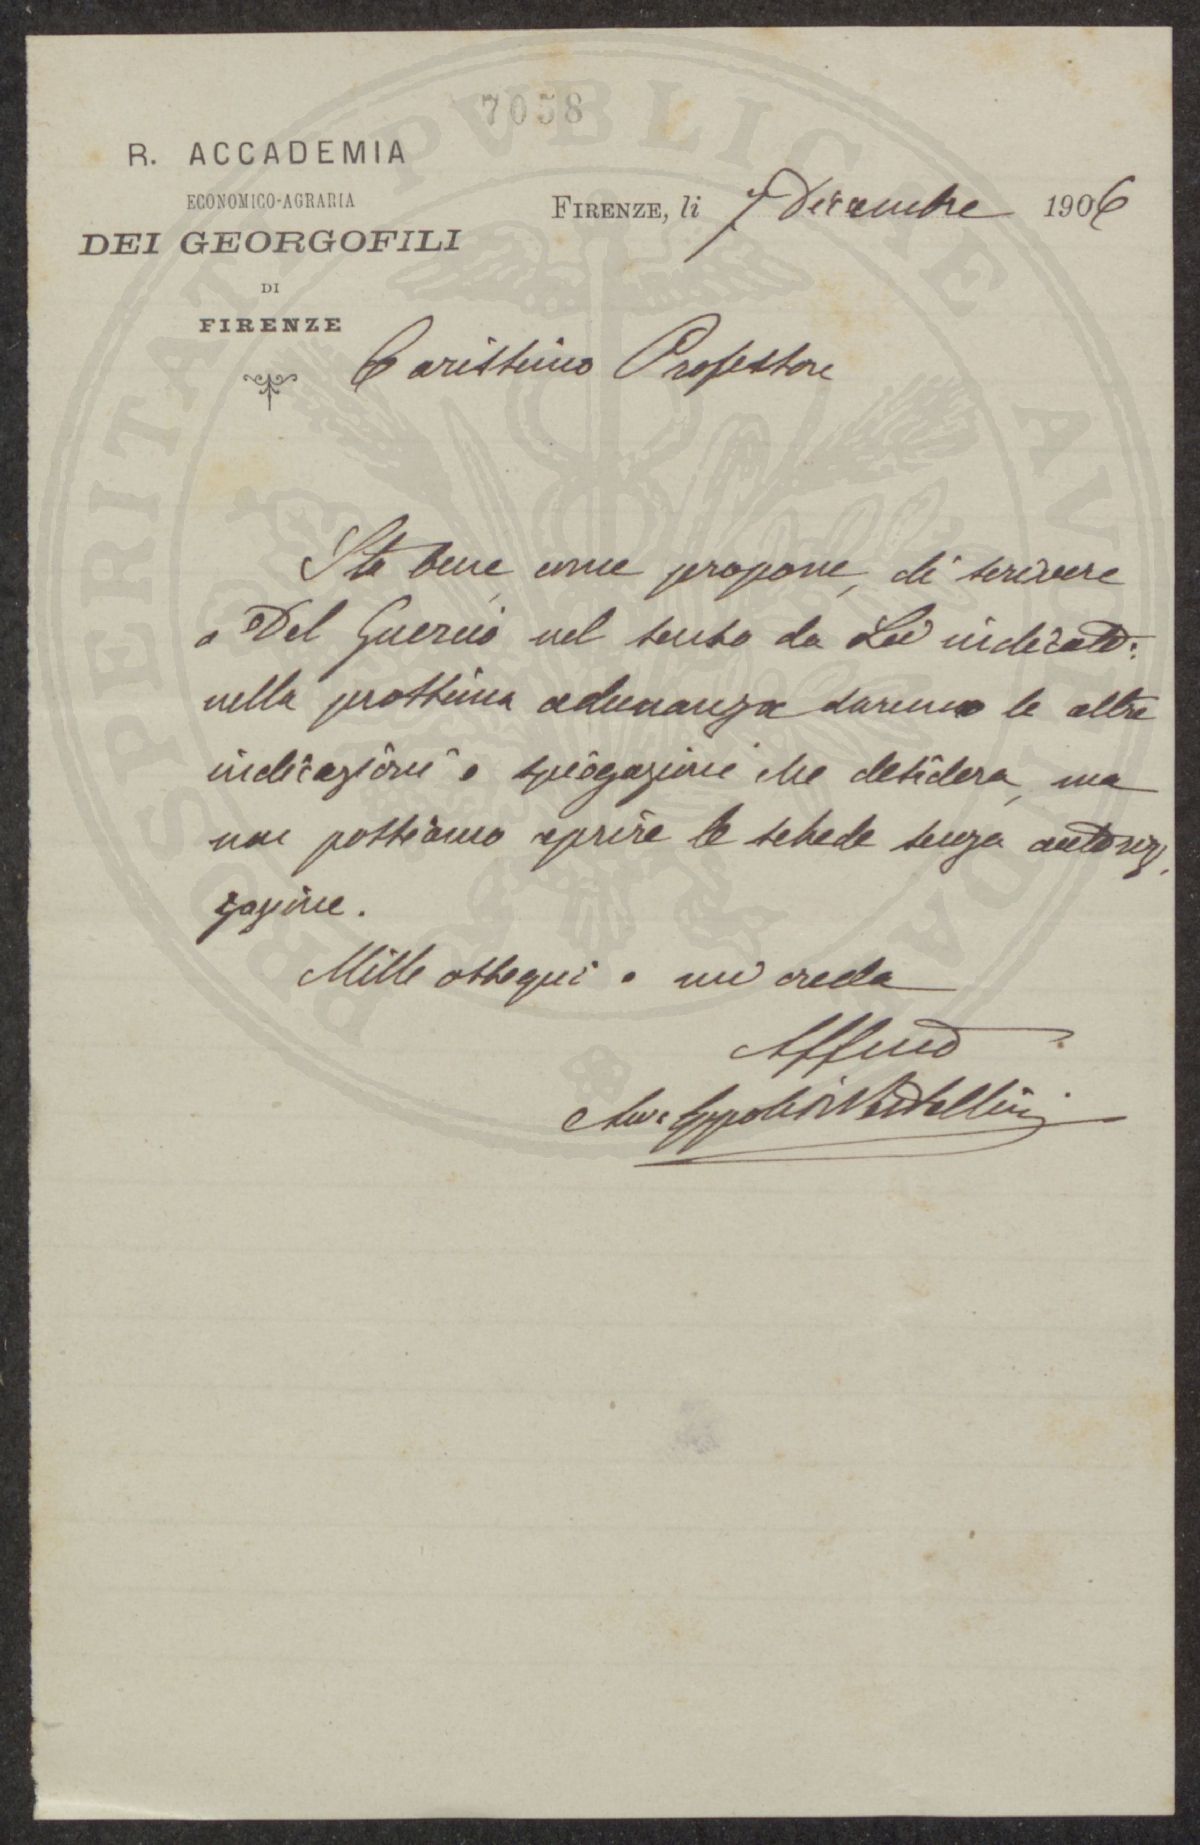 7058
R. ACCADEMIA
ECONOMICO-AGRARIA
DEI GEORGOFILI
DI
FIRENZE
FIRENZE, li 7 Dicembre 1906
Carissimo Professore
Sta bene, come propone, di scrivere
a Del Guercio nel senso da Lei indicato:
nella prossima adunanza daremo le altre
indicazioni e spiegazioni che desidera, ma
non possiamo aprire le schede senza autoriz-
zazione.
Mille ossequi e mi creda
Affmo
Avv. Ippolito Pestellini
PROSPERITATI PVBLICAE AVGENDAE